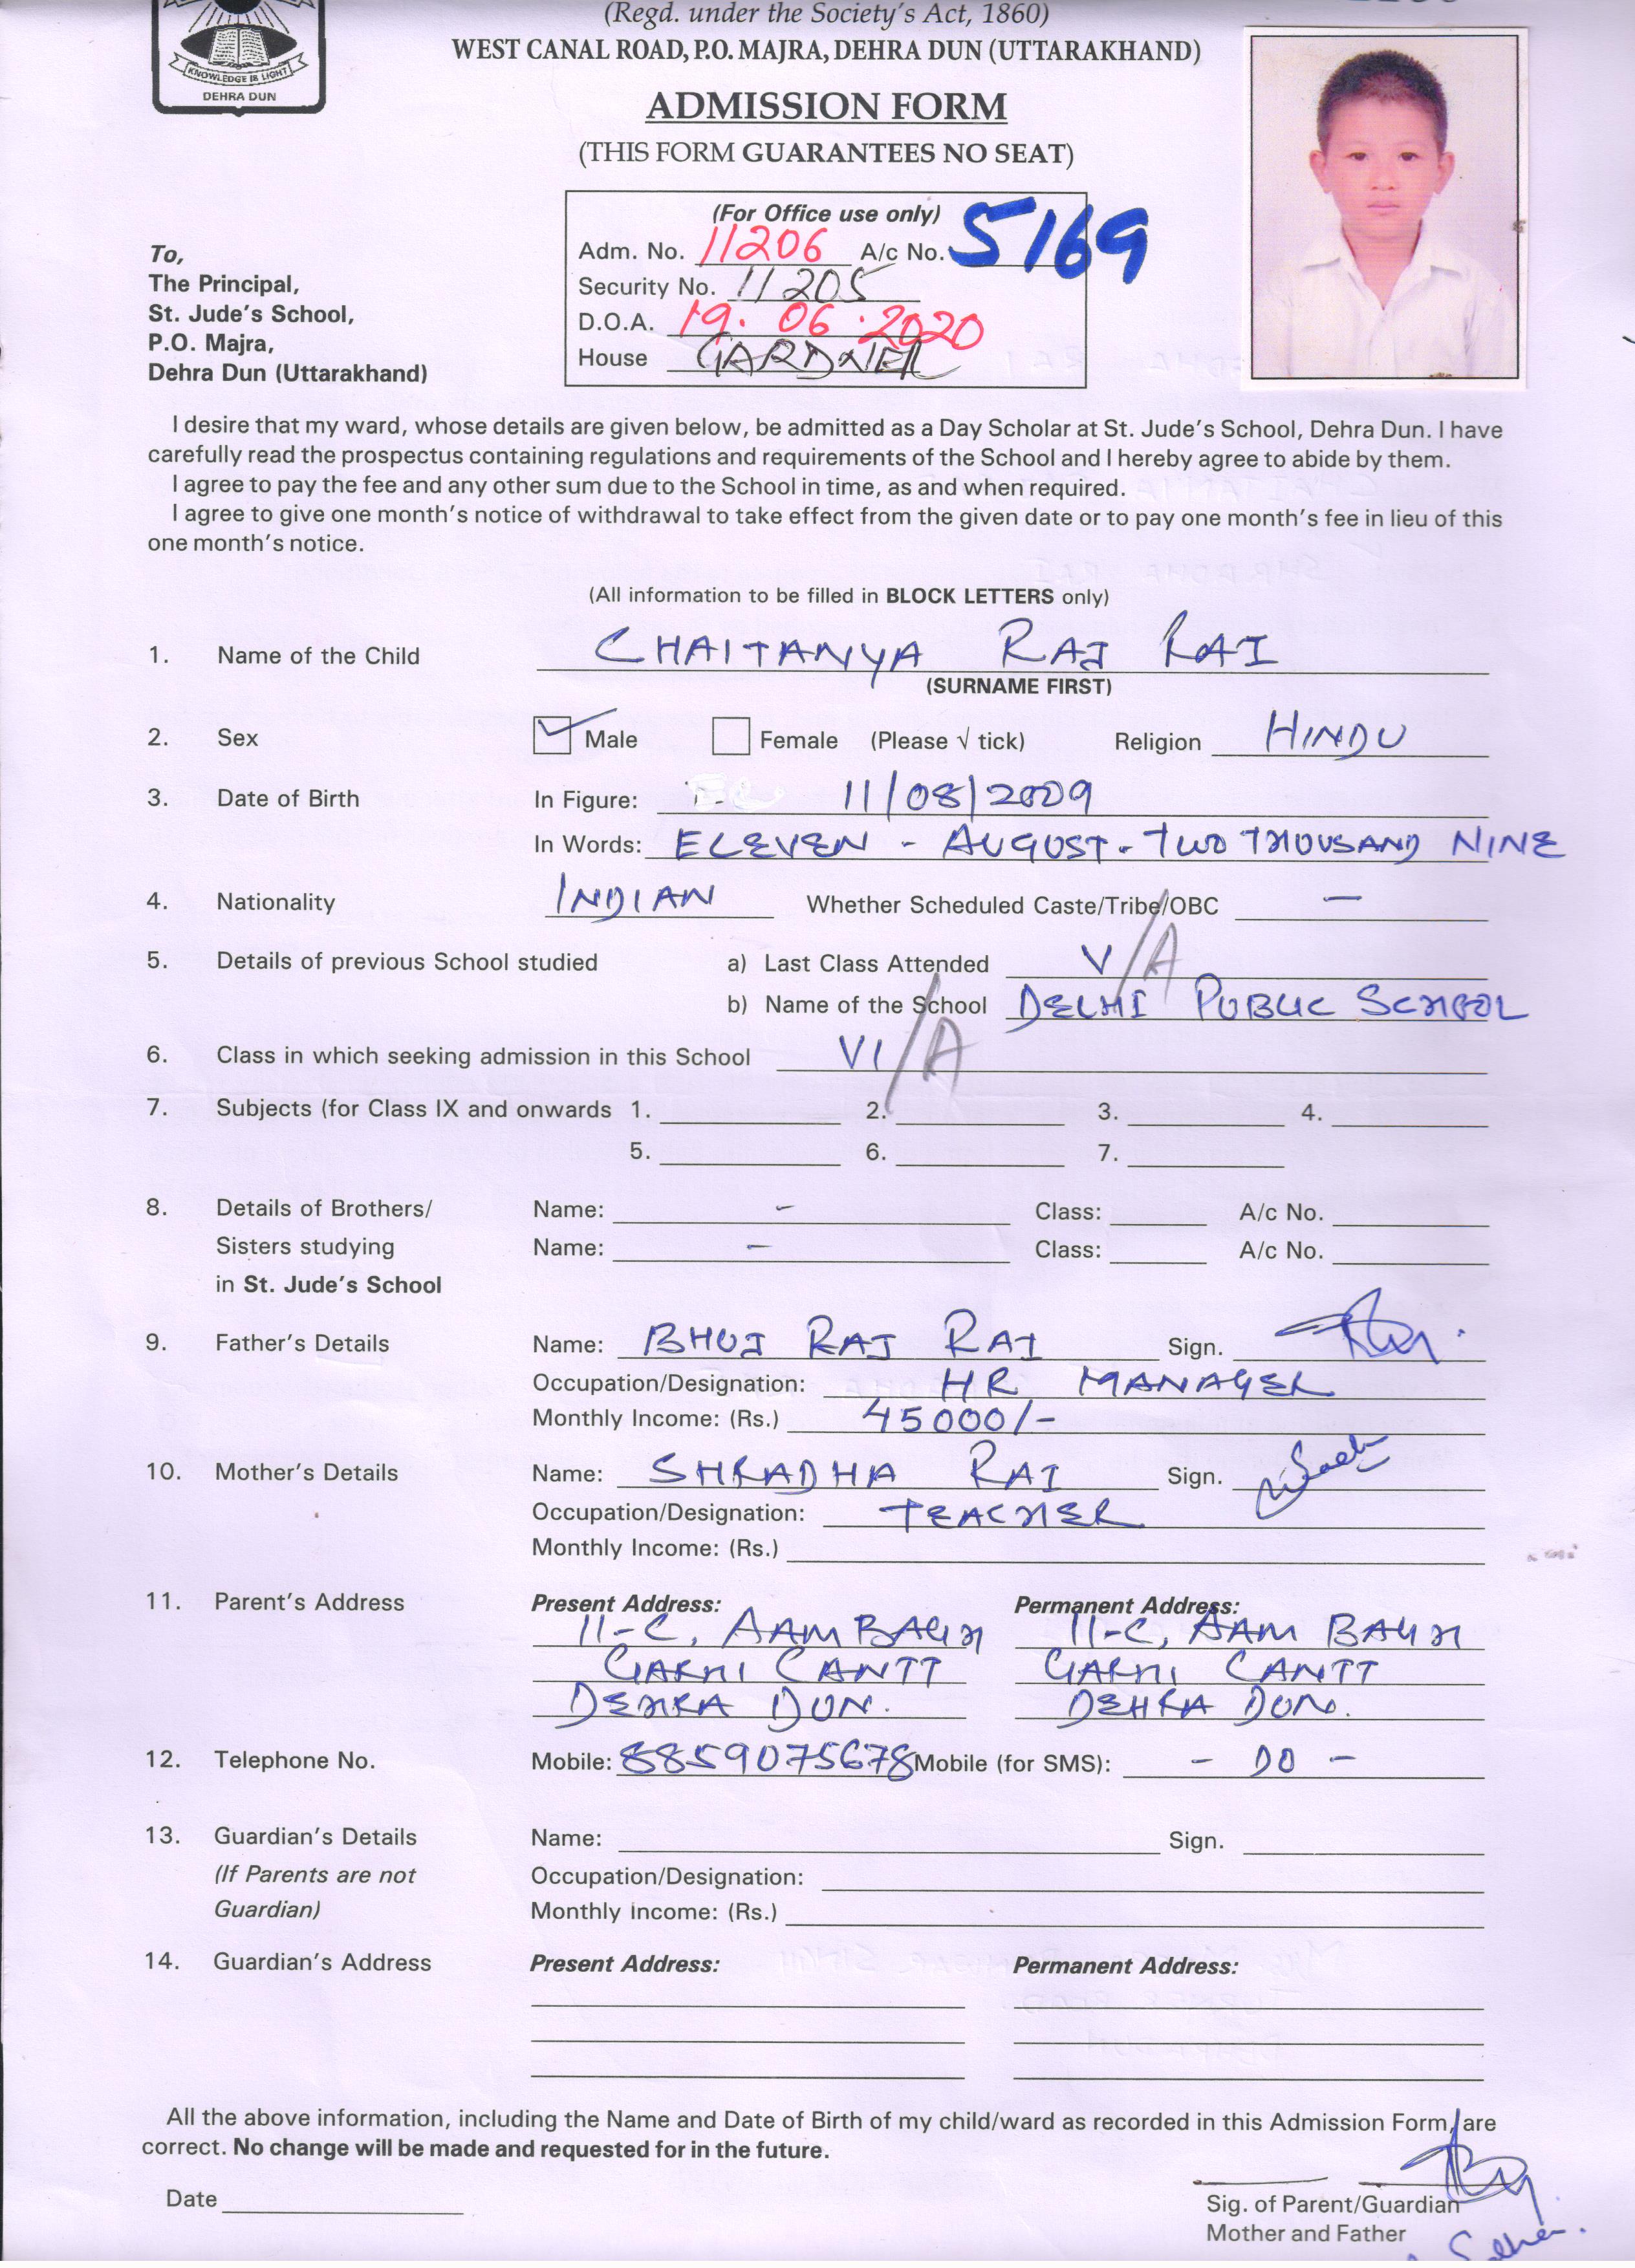 (Regd. under the Society's Act, 1860)
WEST CANAL ROAD, P.O. MAJRA, DEHRA DUN (UTTARAKHAND)
KNOWLEDGE IS LIGHT
DEHRA DUN
ADMISSION FORM
(THIS FORM GUARANTEES NO SEAT)
(For Office use only)
Adm. No. 11206 A/c No. 5169
Security No. 11205
D.O.A. 19.06.2020
House GARDNER
To,
The Principal,
St. Jude's School,
P.O. Majra,
Dehra Dun (Uttarakhand)
I desire that my ward, whose details are given below, be admitted as a Day Scholar at St. Jude's School, Dehra Dun. I have
carefully read the prospectus containing regulations and requirements of the School and I hereby agree to abide by them.
I agree to pay the fee and any other sum due to the School in time, as and when required.
I agree to give one month's notice of withdrawal to take effect from the given date or to pay one month's fee in lieu of this
one month's notice.
(All information to be filled in BLOCK LETTERS only)
1. Name of the Child CHAITANYA RAJ RAI
(SURNAME FIRST)
2. Sex Male Female (Please √ tick) Religion HINDU
3. Date of Birth In Figure: 11/08/2009
In Words: ELEVEN - AUGUST - TWO THOUSAND NINE
4. Nationality INDIAN Whether Scheduled Caste/Tribe/OBC —
5. Details of previous School studied a) Last Class Attended V/A
b) Name of the School DELHI PUBLIC SCHOOL
6. Class in which seeking admission in this School VI/A
7. Subjects (for Class IX and onwards 1. 2. 3. 4.
5. 6. 7.
8. Details of Brothers/ Name: - Class: A/c No.
Sisters studying Name: - Class: A/c No.
in St. Jude's School
9. Father's Details Name: BHUJ RAJ RAI Sign.
Occupation/Designation: HR MANAGER
Monthly Income: (Rs.) 45000/-
10. Mother's Details Name: SHRADHA RAI Sign.
Occupation/Designation: TEACHER
Monthly Income: (Rs.)
11. Parent's Address Present Address: Permanent Address:
11-C, AAM BAGH 11-C, AAM BAGH
GARHI CANTT GARHI CANTT
DEHRA DUN. DEHRA DUN.
12. Telephone No. Mobile: 8859075678 Mobile (for SMS): - DO -
13. Guardian's Details Name: Sign.
(If Parents are not Occupation/Designation:
Guardian) Monthly Income: (Rs.)
14. Guardian's Address Present Address: Permanent Address:
All the above information, including the Name and Date of Birth of my child/ward as recorded in this Admission Form, are
correct. No change will be made and requested for in the future.
Date
Sig. of Parent/Guardian
Mother and Father